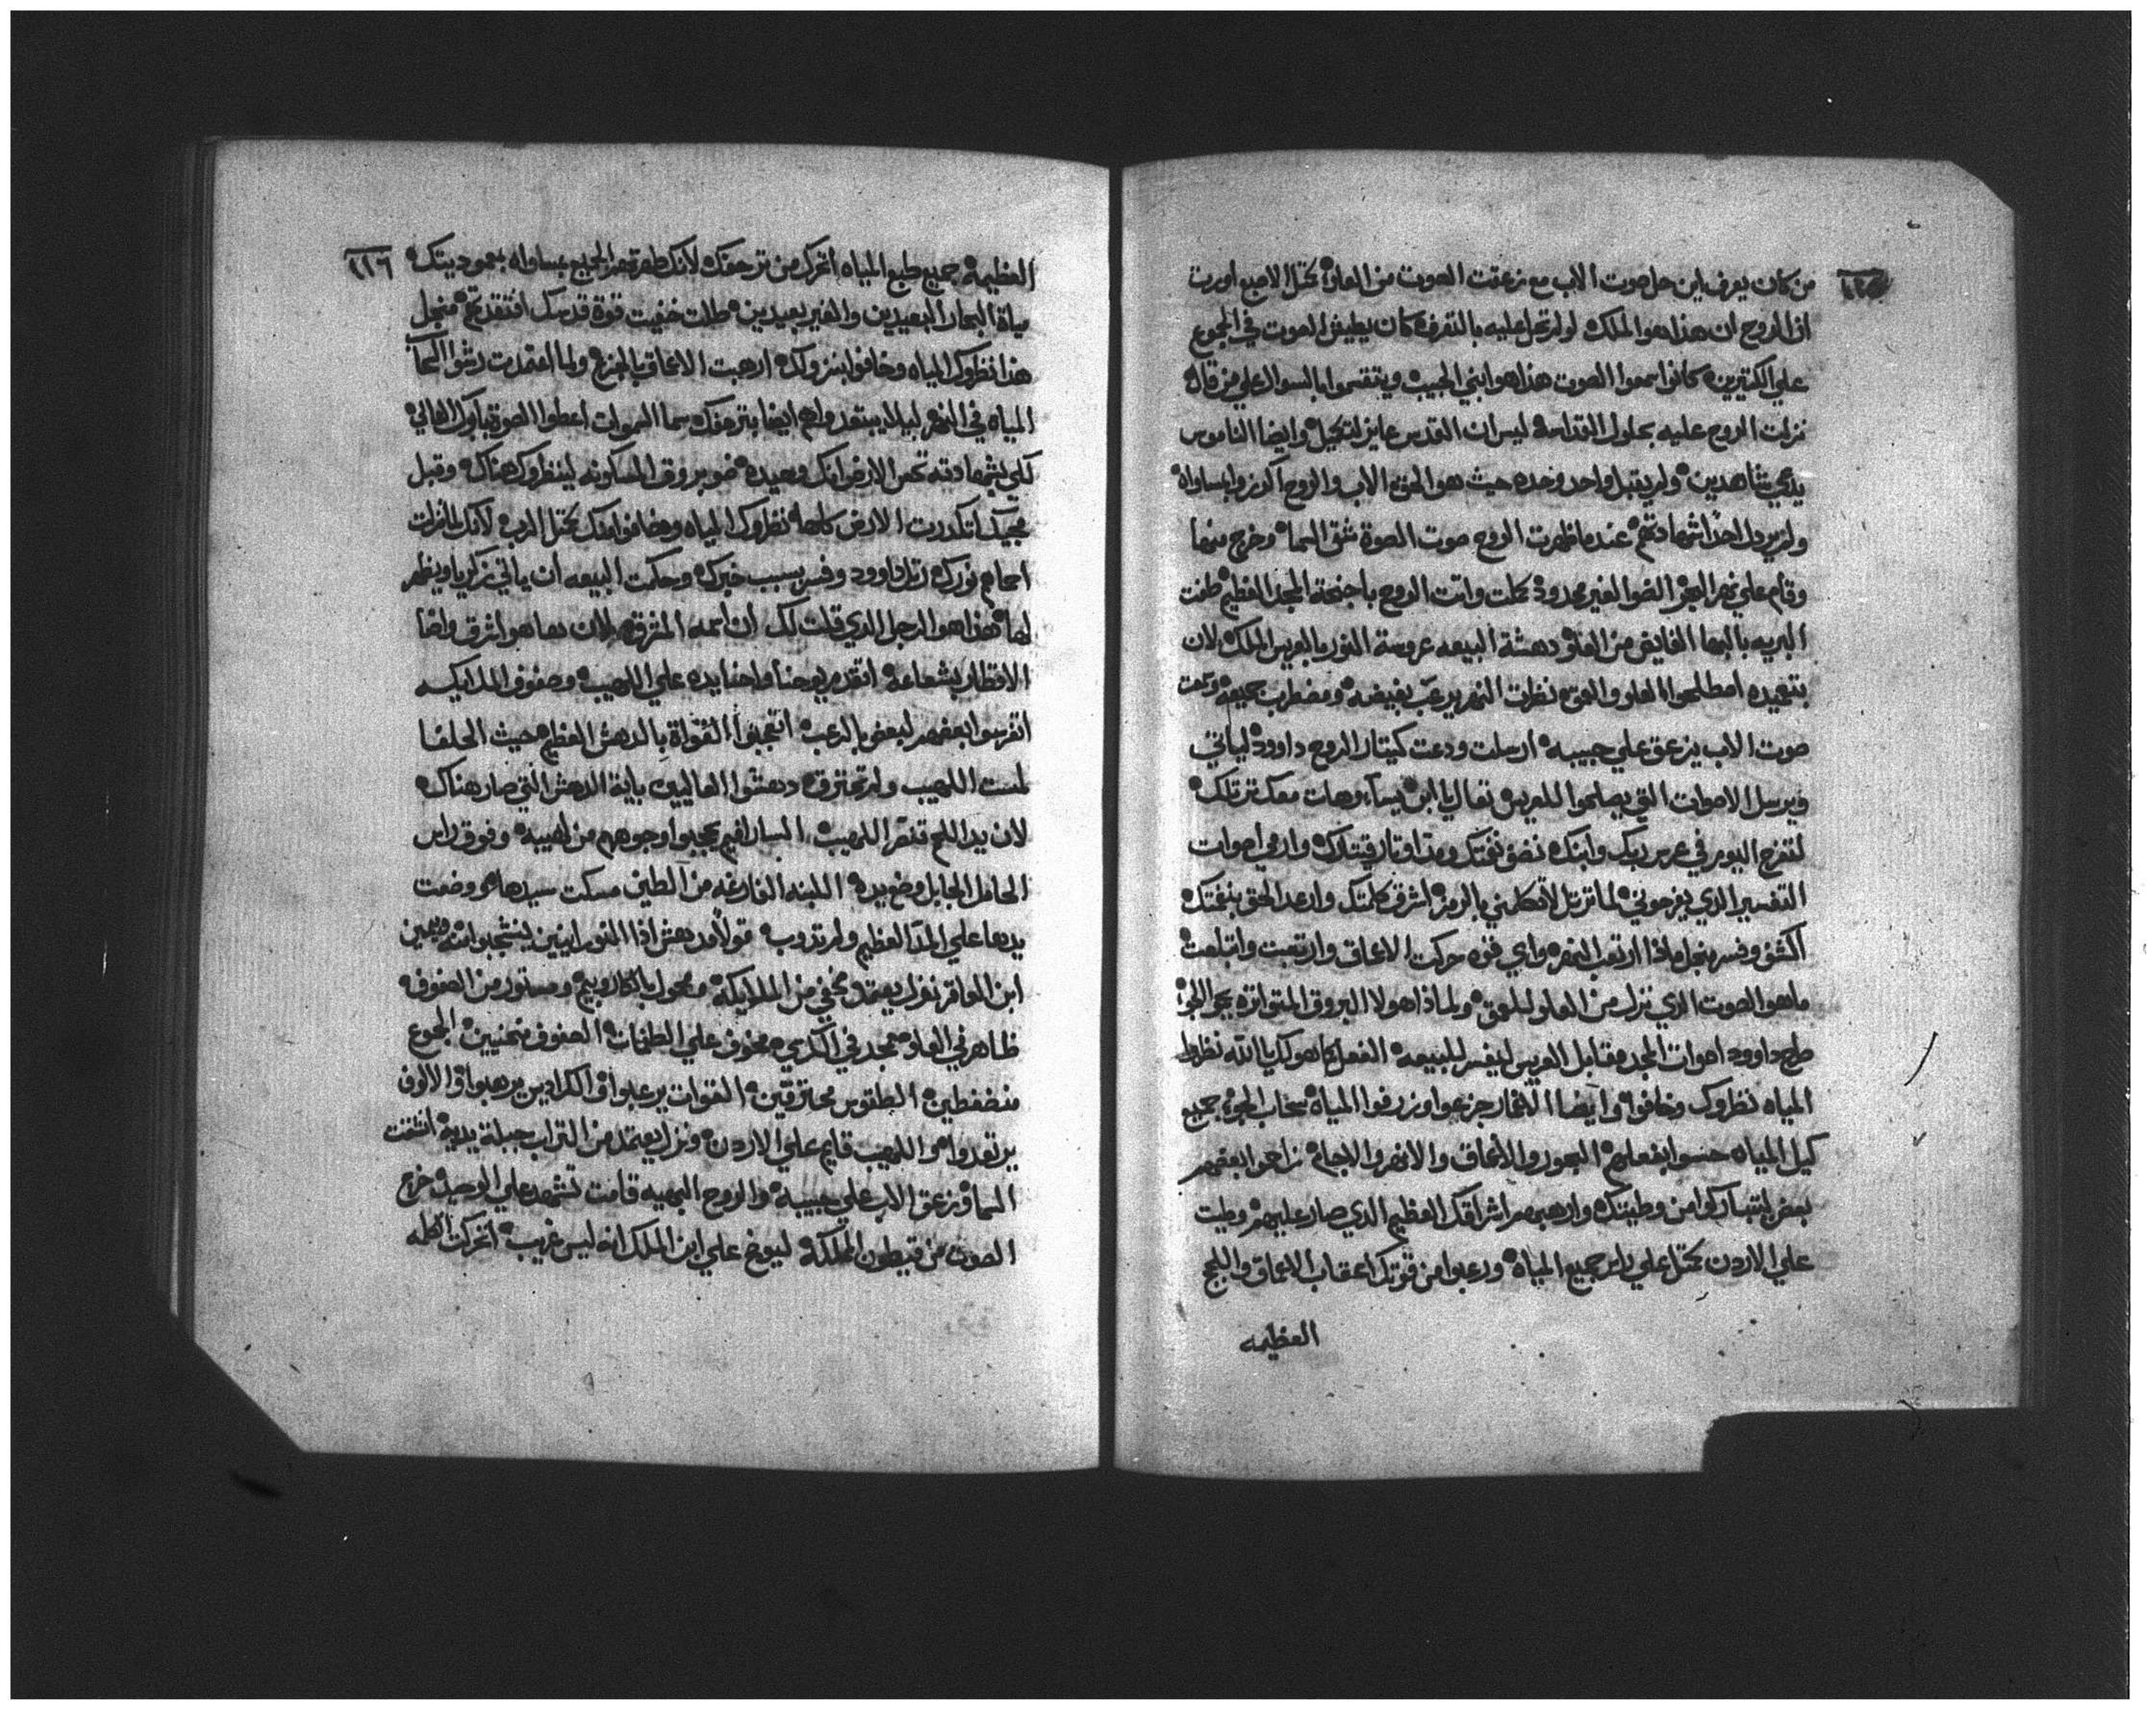 ١١٥
من كان يعرف اين حل صوت الاب مع زعقت الصوت من العلو كمثل الاصبع اورت
ان الروح ان هذا هو الملك لولم تحل عليه بالتعرفه كان يطيش الصوت في الجموع
علي الكتيرين كانوا سمعوا الصوت هذا هو ابني الحبيب ويتقسموا بالسوال علي من قال
نزلت الروح عليه بحلول القداسه ليس ان القدس عايز لتكميل وايضا الناموس
يدعي شاهدين ولم يقبل واحد وحده حيث هو الحق الاب والروح اكرزوا بمساواه
ولم يردل احدا شهادتهم عندما ظهرت الروح صوت الصوة شق السما وخرج منها
وقام علي نهر البحر الضوا الغير محدود كملت واتت الروح باجنحة المجد العظيم طفت
البريه بالبها الفايض من العلو دهشة البيعه عروسة النور بالعريس الملك لان
بتعميده اصطلحوا العلو والعمق نظرت النهر يرعب بفيضه ومضطرب جميعه
صوت الاب يزعق علي حبيبه ارسلت ودعت كيتار الروح داوود لياتي
ويرسل الاصوات التي يصلحوا للعريس تعال يا ابن يسا وهات معك ترتلك
لتفرح اليوم في عرس ربك وابنك نضف نغمتك ومد اوتار قيتارك وارمي اصوات
التفسير الذي يفرحوني لما ترتل لا تكلمني بالرمز اشرق كلمتك وارعد الحق بنغمتك
اكشف وفسر بنجل ماذا ارتعب النهر واي قوه حركت الاعماق وارتعبت وابتلعت
ما هو الصوت الذي نزل من العلو للعمق ولماذا هولا البروق المتواتره بجو الجو
طرح داوود اصوات المجد مقابل العريس ليفسر للبيعه الفعل كما هو لك يا الله نظروا
المياه نظروك وخافوا وايضا الاغمار جزعوا وزرفوا المياه سحاب الجو جميع
كيل المياه حسوا بفعلهم البحور والاعماق والانهر والاجاه زاحوا بعضهم
بعض ليتباركوا من وطيتك وارهبهم اشراقك العظيم الذي صار عليهم وطيت
علي الاردن كمثل علي راس جميع المياه ورعبوا من قوتك اعقاب الاعماق واللجج
العظيمه
١١٦
العظيمة جميع طبع المياه اتحرك من ترجفتك لانك طهرتهم الجميع بمساواه بمعموديتك
مياة البحار البعيدين والغير بعيدين طلت خفيت قوة قدسك افتقدتهم منجل
هذا نظروك المياه وخافوا بنزولك ارهبت الاعماق بالجزع ولما اعتمدت رشوا السحاب
المياه في النهر ليلا يبتعدوا هم ايضا بترجفتك سما السموات اعطوا الصوة باكرا العالي
لكي بشهادته تحس الارض انك وحيده ضو بروق المسكونه لينظروك هناك وقبل
مجيك اتكدرت الارض كلها نظروك المياه وخافوا منك كمثل الرب لانك لما نزلت
احمام نورك ارتل داوود وفسر بسبب خبرك وحكت البيعه ان ياتي زكريا ويظهر
لها هذا هو الرجل الذي قلت لك ان اسمه المشرق لان ها هو اشرق واضا
الاقطار بشعاعه اتقدم يوحنا واحنا يده علي اللهيب وصفوف الملايكه
اتفرسوا بعضهم لبعض بالرعب اتعجبوا القواة بالدهش العظيم حيث الحلفا
لمست اللهيب ولم تحترق دهشوا العاليين باية الدهش التي صار هناك
لان يد اللحم تعمر اللهيب السارافيم يحجبوا وجوههم من لهيبه وفوق راس
الحامل الجابل وضع يده اللبنه الفارغه من الطين مسكت سيدها ووضعت
يدها علي المد العظيم ولم تدوب قولا مدهش اذا النورانيين ينعجبوا منه ويمين
ابن العاقر نزل يعتمد مخفي من الملايكة ومحمول بالكاروبيم ومستور من الصفوف
ظاهر في العلو ممجد في الكرسي مخوف علي الطغمات الصفوف منحنيين الجموع
منضغطين الطقوس محترقين القوات يرعبوا الكراديس يرهبوا والالوف
يرتعدوا هو اللهيب قايم علي الاردن ونزل يعتمد من التراب جبلة يديه انشقت
السما وزعق الاب علي حبيبه والروح البهيه قامت تشهد علي الوحيد خرج
الصوت من قيطون المملكة ليوبخ علي ابن الملك انه ليس غريب اتحركت اظله